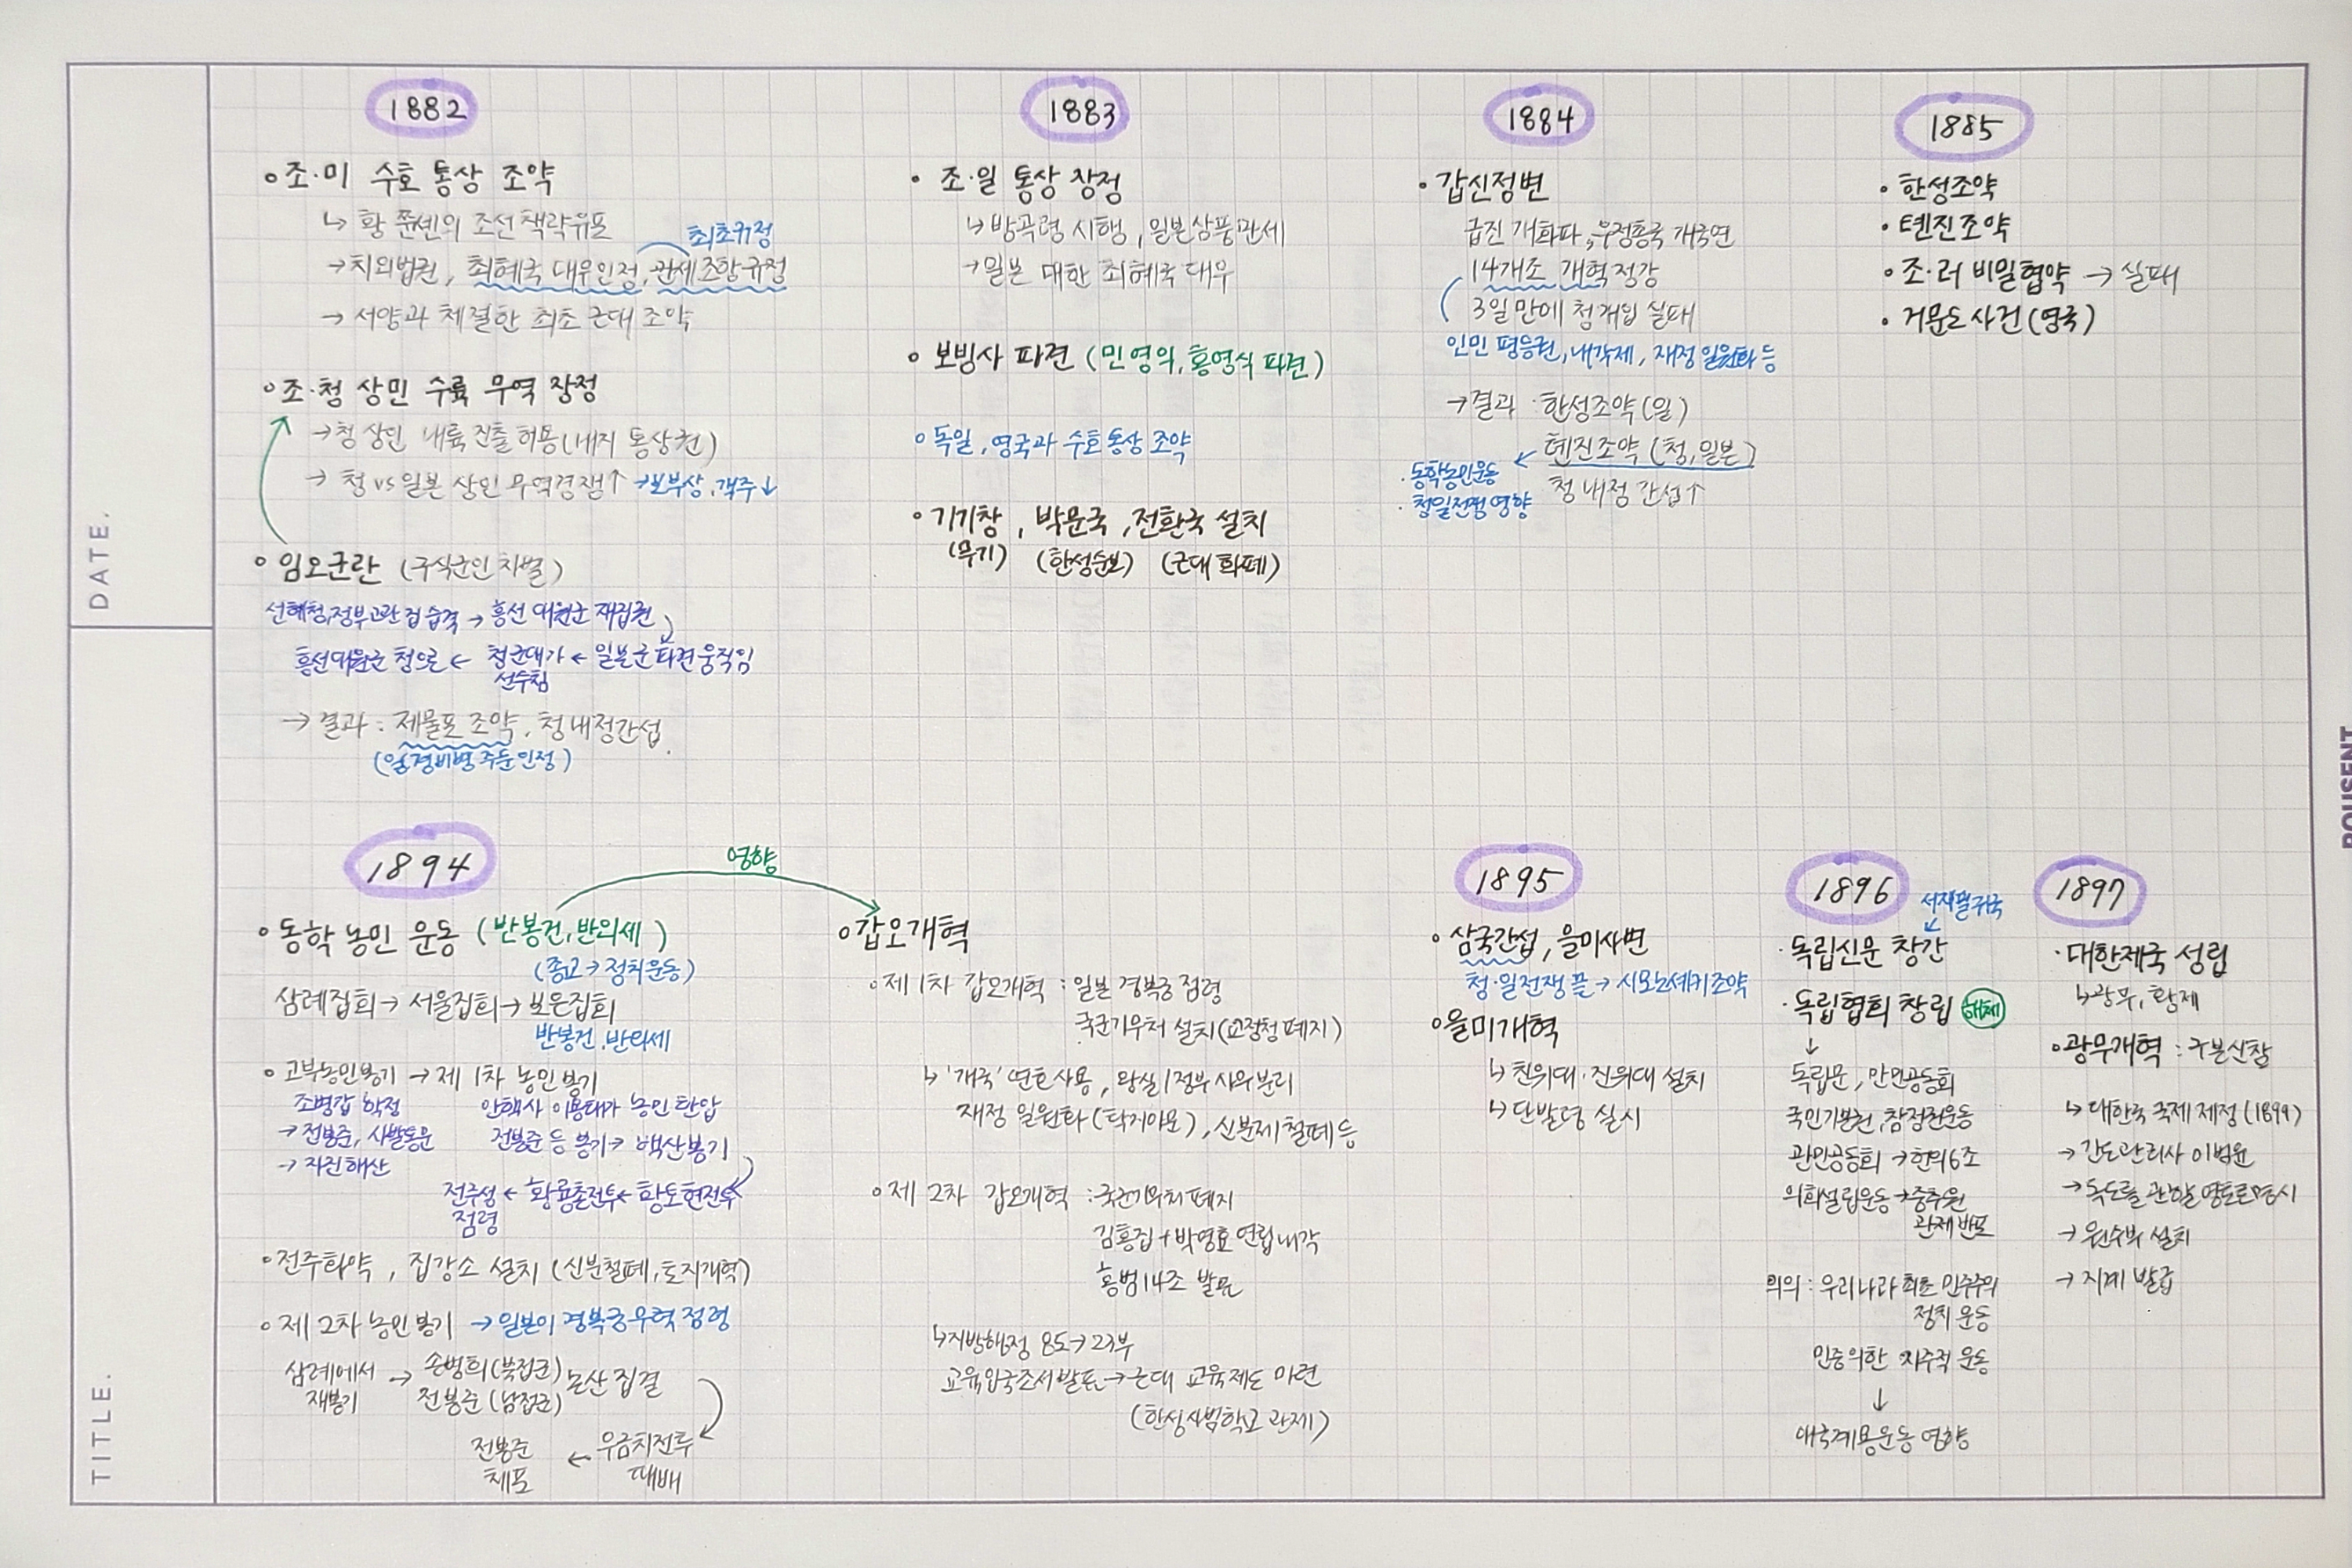 1882
∘조·미 수호 통상 조약
↳ 황 쭌셴의 조선책략유포
최초규정
→치외법권, 최혜국 대우인정, 관세조항규정
→ 서양과 체결한 최초 근대 조약
∘조·청 상민 수륙 무역 장정
→청 상인 내륙 진출 허용(내지 통상권)
→ 청 vs 일본 상인 무역경쟁↑ →보부상, 객주↓
∘임오군란 (구식군인 차별)
선혜청, 정부고관 집 습격 → 흥선 대원군 재집권
흥선대원군 청으로 ← 청군대가 ← 일본군 파견 움직임
선수침
→ 결과 : 제물포 조약, 청 내정간섭.
(일경비병 주둔 인정)
1883
· 조·일 통상 장정
↳방곡령 시행, 일본상품관세
→일본 대한 최혜국 대우
∘보빙사 파견 (민영익, 홍영식 파견)
∘독일, 영국과 수호통상 조약
∘기기창, 박문국, 전환국 설치
(무기) (한성순보) (근대 화폐)
1884
· 갑신정변
급진 개화파, 우정총국 개국연
14개조 개혁정강
3일만에 청개입 실패
인민 평등권, 내각제, 재정 일원화 등
→결과 : 한성조약(일)
톈진조약 (청, 일본)
청 내정 간섭↑
·동학농민운동
·청일전쟁 영향
1885
· 한성조약
· 톈진조약
· 조·러 비밀협약 → 실패
· 거문도 사건(영국)
1894
영향
∘동학 농민 운동 (반봉건, 반외세)
(종교→정치운동)
삼례집회→ 서울집회→ 보은집회
반봉건, 반외세
∘고부농민봉기 → 제 1차 농민 봉기
조병갑 학정
→전봉준, 사발통문
→ 자진해산
안핵사 이용태가 농민 탄압
전봉준 등 봉기→ 백산봉기
전주성 ← 황룡촌전투← 황토현전투
점령
∘전주화약, 집강소 설치 (신분철폐, 토지개혁)
∘제 2차 농민 봉기 →일본이 경복궁 무력 점령
삼례에서 → 손병희(북접군) 논산 집결
재봉기 전봉준 (남접군)
전봉준 ← 우금치전투
체포 대패
∘갑오개혁
∘제 1차 갑오개혁 : 일본 경복궁 점령
국군기무처 설치(교정청 폐지)
↳ '개국' 연호사용, 왕실/정부 사무분리
재정 일원화 (탁지아문), 신분제 철폐 등
∘제 2차 갑오개혁 : 국군기무처 폐지
김홍집+박영효 연립내각
홍범14조 발표
↳지방행정 8도→23부
교육입국조서발표→근대 교육제도 마련
(한성사범학교 관제)
1895
· 삼국간섭, 을미사변
청·일전쟁 끝→ 시모노세키조약
∘을미개혁
↳ 친위대·진위대 설치
↳ 단발령 실시
1896
서재필귀국
· 독립신문 창간
· 독립협회 창립 해체
↓
독립문, 만민공동회
국민기본권, 참정권운동
관민공동회 →헌의6조
의회설립운동→중추원
관제 반포
의의 : 우리나라 최초 민주주의
정치 운동
민중의한 자주적 운동
↓
애국계몽운동 영향
1897
· 대한제국 성립
↳광무, 황제
∘광무개혁 : 구본신참
↳ 대한국 국제 제정(1899)
→ 간도관리사 이범윤
→독도를 관할 영토로명시
→ 원수부 설치
→ 지계 발급
DATE.
TITLE.